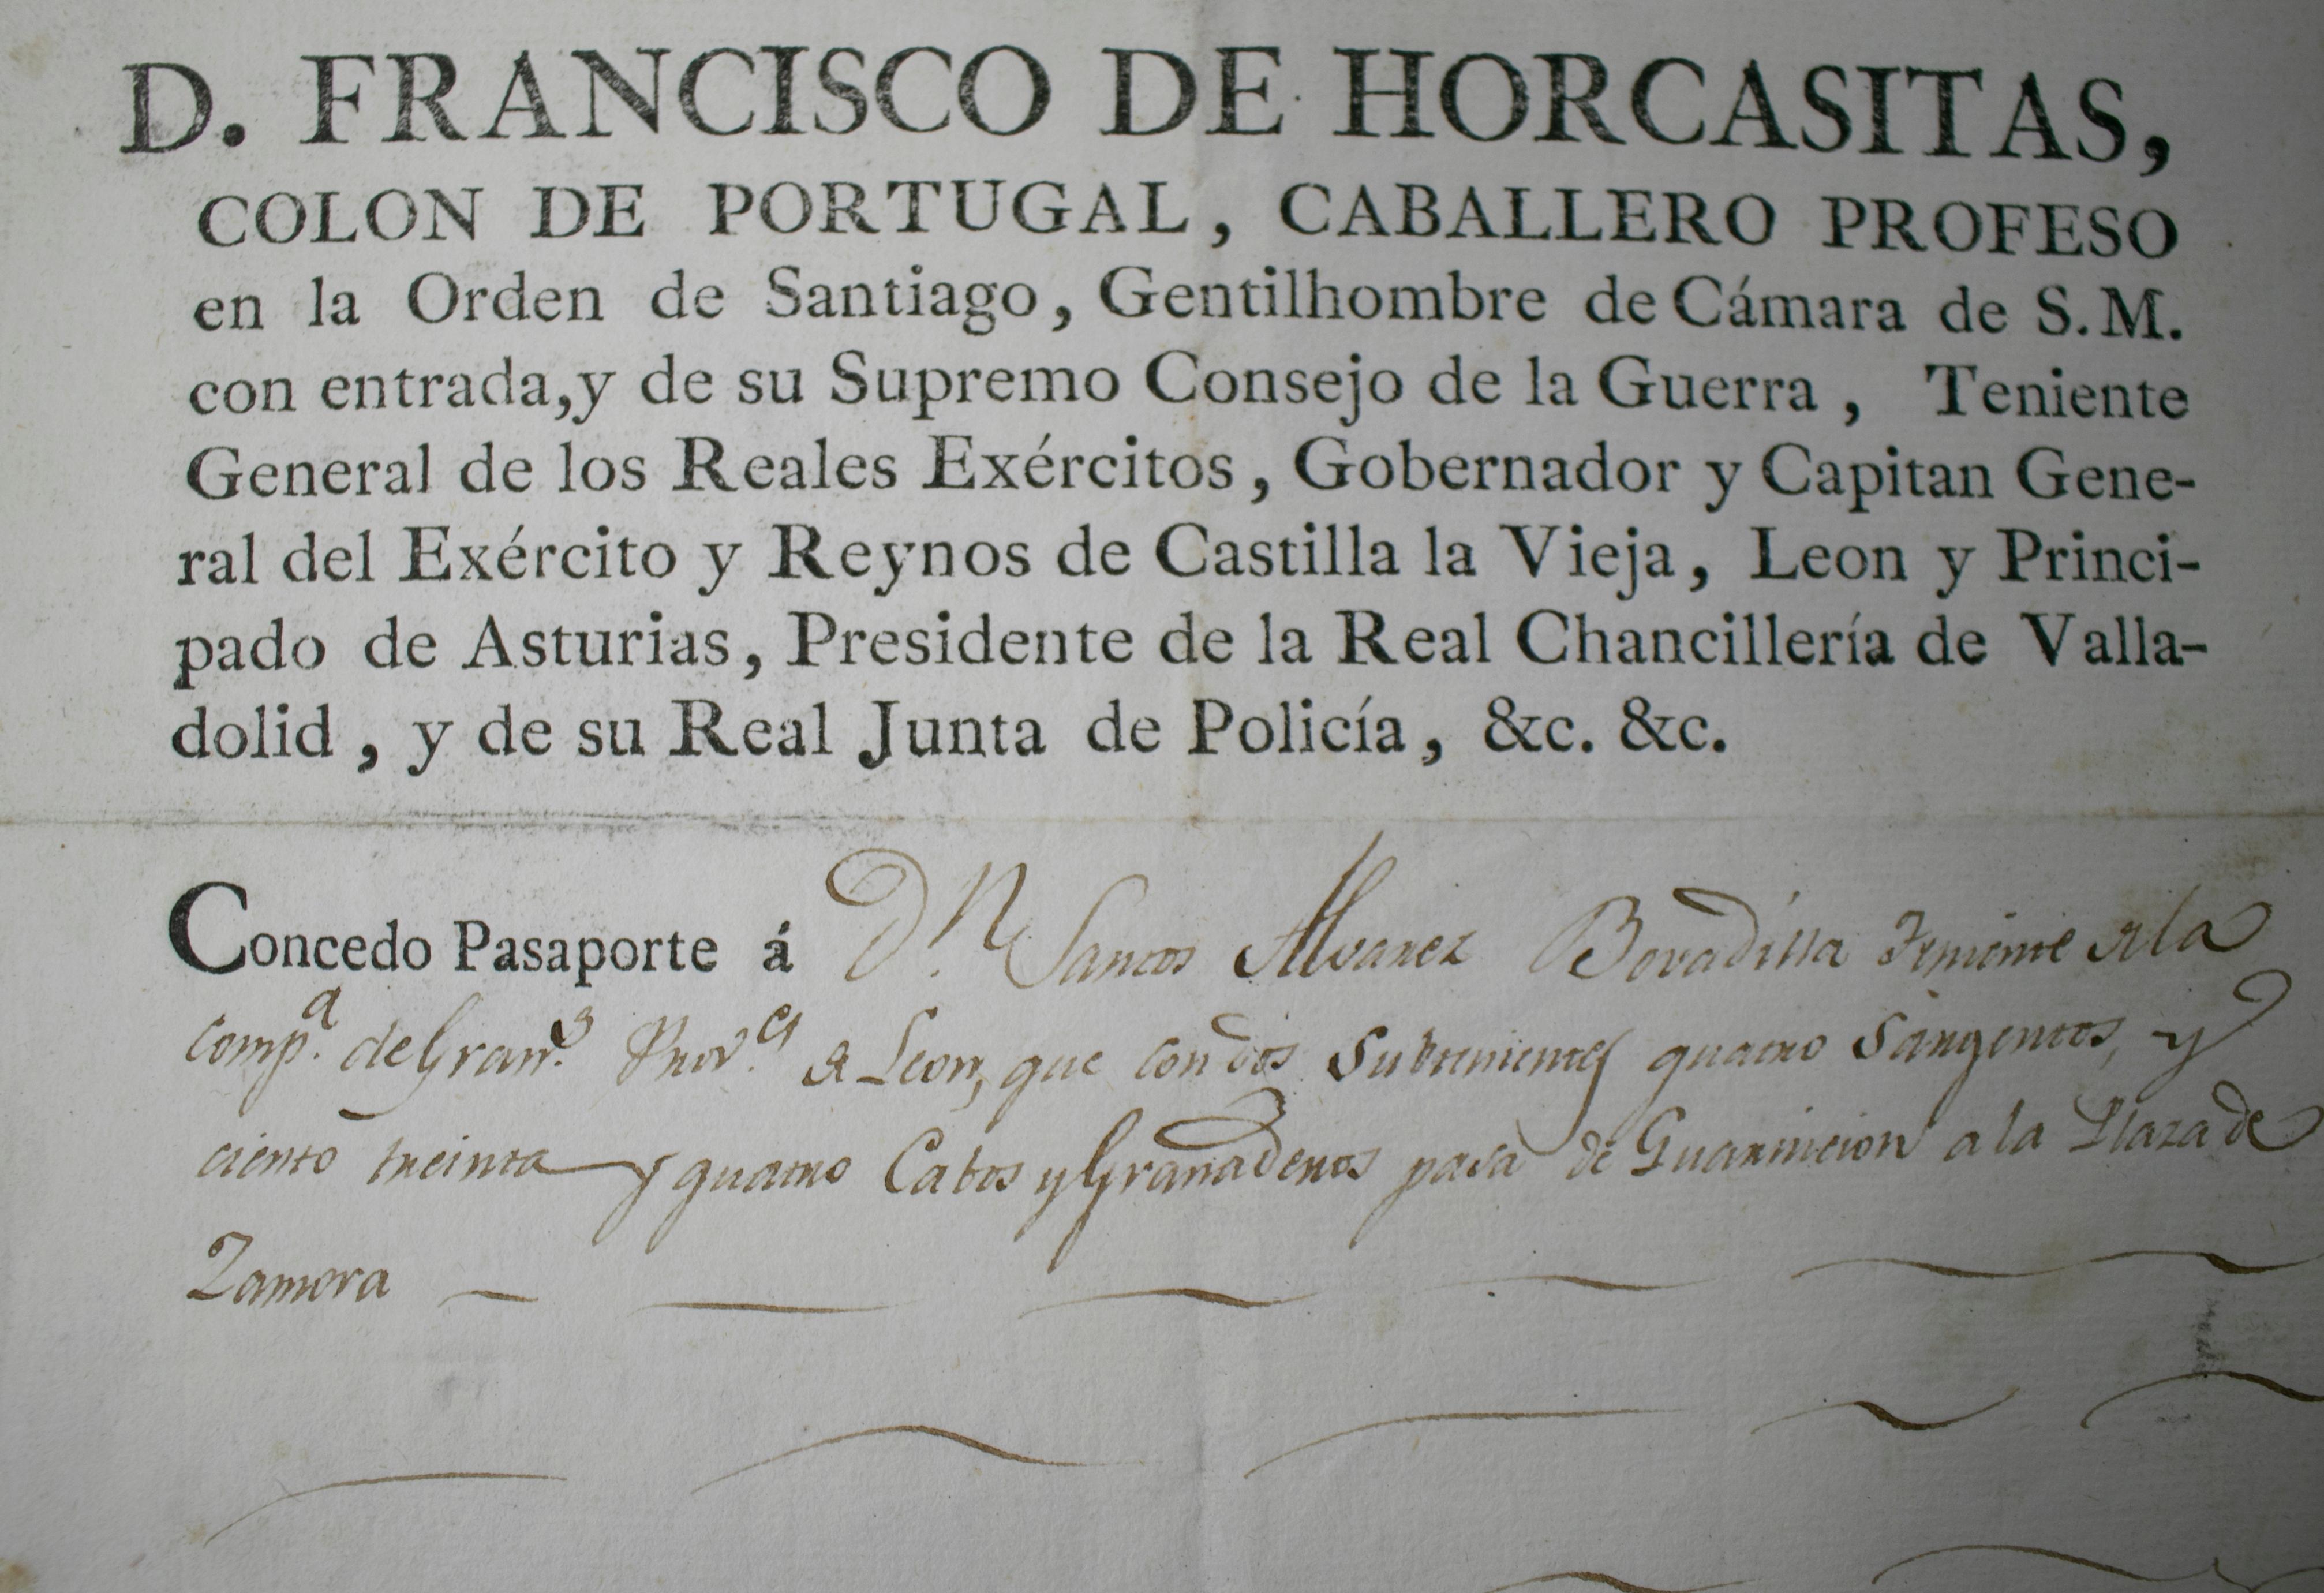 D. FRANCISCO DE HORCASITAS,
COLON DE PORTUGAL, CABALLERO PROFESO
en la Orden de Santiago, Gentilhombre de Cámara de S.M.
con entrada, y de su Supremo Consejo de la Guerra, Teniente
General de los Reales Exércitos, Gobernador y Capitan Gene-
ral del Exército y Reynos de Castilla la Vieja, Leon y Princi-
pado de Asturias, Presidente de la Real Chancillería de Valla-
dolid, y de su Real Junta de Policía, &c. &c.
Concedo Pasaporte á Dn. Santos Alvarez Bovadilla Teniente de la
Comp.a de Gran.s Prov.es de Leon, que con dos Subtenientes quatro Sargentos, y
ciento treinta y quatro Cabos y Granaderos pasa de Guarnicion a la Plaza de
Zamora